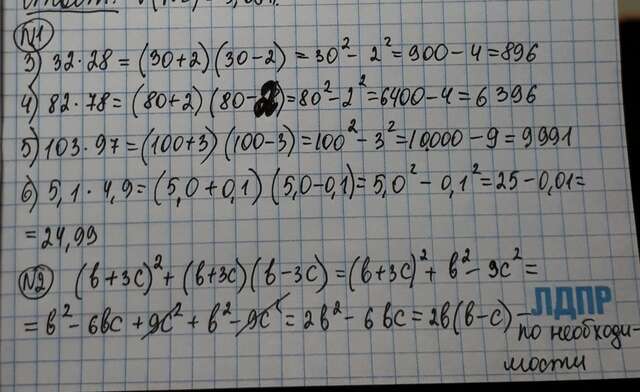 №1
3) 32·28 = (30+2)(30-2) = 30² - 2² = 900 - 4 = 896
4) 82·78 = (80+2)(80-2) = 80² - 2² = 6400 - 4 = 6396
5) 103·97 = (100+3)(100-3) = 100² - 3² = 10000 - 9 = 9991
6) 5,1·4,9 = (5,0+0,1)(5,0-0,1) = 5,0² - 0,1² = 25 - 0,01 =
= 24,99
№2 (в+3с)² + (в+3с)(в-3с) = (в+3с)² + в² - 9с² =
= в² - 6вс + 9с² + в² - 9с² = 2в² - 6вс = 2в(в-с) -
ЛДПР
по необходи-
мости